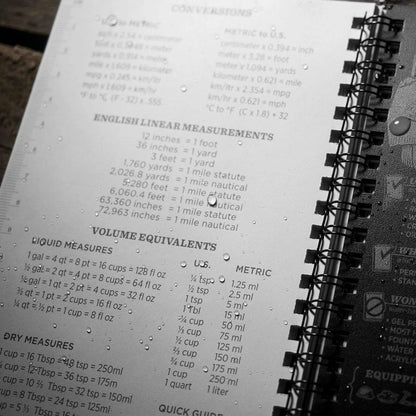 CONVERSIONS
to METRIC
METRIC to U.S.
sq/ft x 2.54 = centimeter
foot x 0.3048 = meter
yards x 0.914 = meter
mile x 1.609 = kilometer
mpg x 0.245 = km/ltr
mph x 1.609 = km/hr
°F to °C (F - 32) x .555
centimeter x 0.394 = inch
meter x 3.28 = foot
meter x 1.094 = yards
kilometer x 0.621 = mile
km/ltr x 2.354 = mpg
km/hr x 0.621 = mph
°C to °F (C x 1.8) + 32
ENGLISH LINEAR MEASUREMENTS
12 inches = 1 foot
36 inches = 1 yard
3 feet = 1 yard
1,760 yards = 1 mile statute
2,026.8 yards = 1 mile nautical
5,280 feet = 1 mile statute
6,060.4 feet = 1 mile nautical
63,360 inches = 1 mile statute
72,963 inches = 1 mile nautical
VOLUME EQUIVALENTS
LIQUID MEASURES
1 gal = 4 qt = 8 pt = 16 cups = 128 fl oz
½ gal = 2 qt = 4 pt = 8 cups = 64 fl oz
¼ gal = 1 qt = 2 pt = 4 cups = 32 fl oz
½ qt = 1 pt = 2 cups = 16 fl oz
¼ qt = ½ pt = 1 cup = 8 fl oz
U.S. METRIC
¼ tsp 1.25 ml
½ tsp 2.5 ml
1 tsp 5 ml
1 Tbl 15 ml
¼ cup 50 ml
⅓ cup 75 ml
½ cup 125 ml
⅔ cup 150 ml
¾ cup 175 ml
1 cup 250 ml
1 quart 1 liter
DRY MEASURES
1 cup = 16 Tbsp = 48 tsp = 250ml
¾ cup = 12 Tbsp = 36 tsp = 175m
cup = 10 ⅔ Tbsp = 32 tsp = 150ml
cup = 8 Tbsp = 24 tsp = 125ml
cup = 5 ⅓ Tbsp = 16
QUICK GUIDE
WE
PE
STAN
WON
GEL
MOST
FOUNT
WATER
ACRYL
EQUIPP